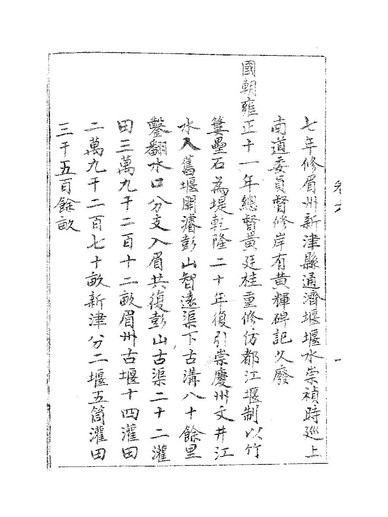 七年修眉州新津縣通濟堰堰水崇禎時巡上
南道委員督修岸有黃輝碑記久廢
國朝雍正十一年總督黃廷桂重修仿都江堰制以竹
簍壘石為堤乾隆二十年復引崇慶州文井江
水入舊堰開濬彭山智遠渠下古溝八十餘里
鑿翻水口分支入眉共復彭山古渠二十二灌
田三萬九千二百十二畝眉州古堰十四灌田
二萬九千二百七十畝新津分二堰五筒灌田
三千五百餘畝